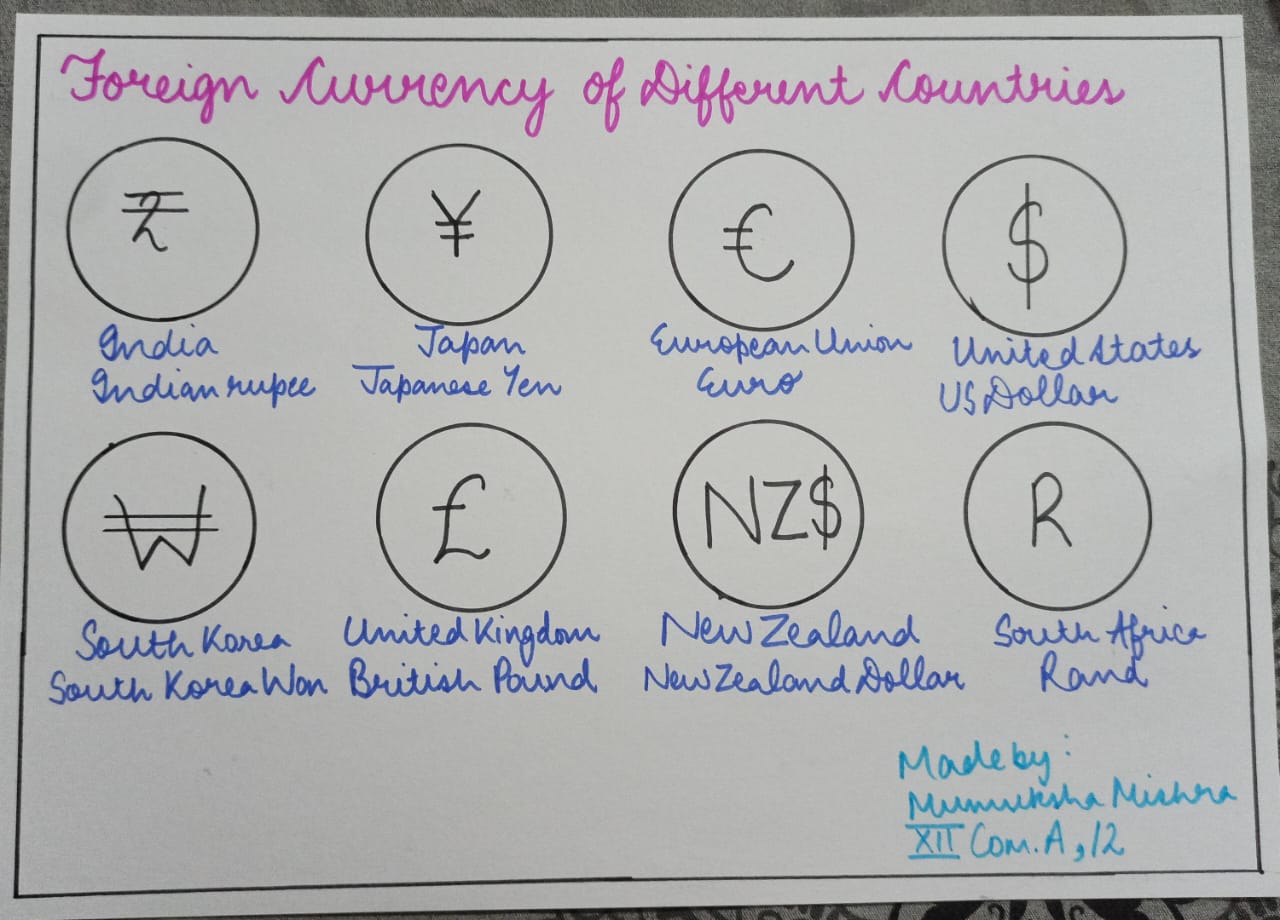 Foreign Currency of Different Countries
₹ ¥ € $
India Japan European Union United States
Indian rupee Japanese Yen Euro US Dollar
₩ £ NZ$ R
South Korea United Kingdom New Zealand South Africa
South Korea Won British Pound New Zealand Dollar Rand
Made by:
Mumuksha Mishra
XII Com. A, 12